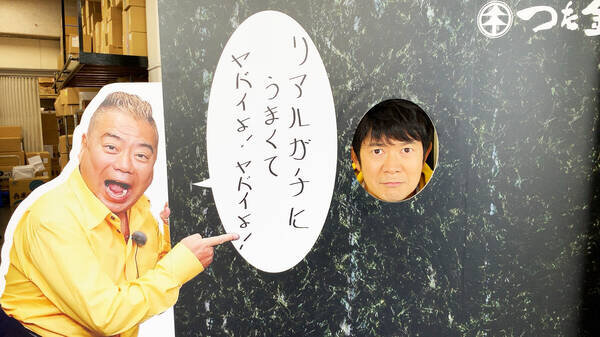 リアルガチに
うまくて
ヤバイよ!ヤバイよ!
木 つた金